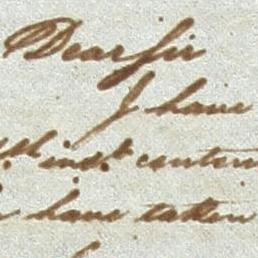 Dear Sir
I have
inst. contain
have taken